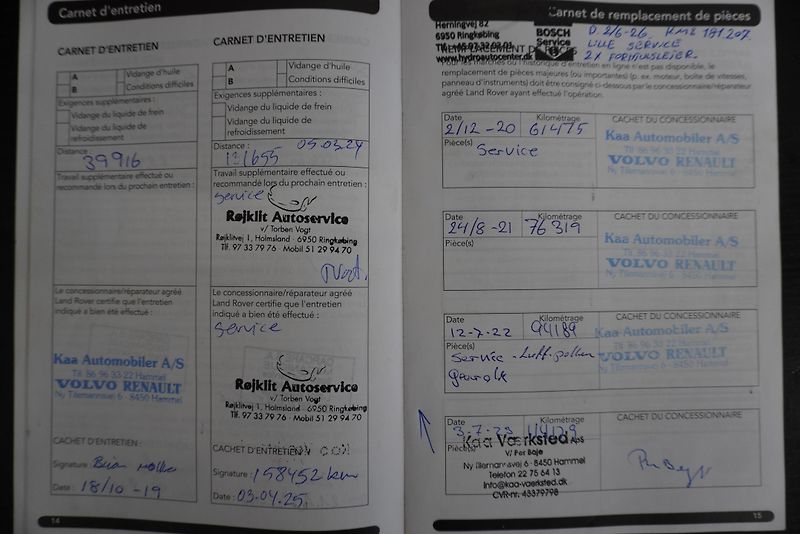 Carnet d'entretien
CARNET D'ENTRETIEN
A
B
Vidange d'huile
Conditions difficiles
Exigences supplémentaires :
Vidange du liquide de frein
Vidange du liquide de refroidissement
Distance :
39916
Travail supplémentaire effectué ou
recommandé lors du prochain entretien :
Le concessionnaire/réparateur agréé
Land Rover certifie que l'entretien
indiqué a bien été effectué :
Kaa Automobiler A/S
Tlf 86 96 33 22 Hammel
VOLVO RENAULT
Ny Tilemannsvej 6 - 8450 Hammel
CACHET D'ENTRETIEN :
Signature :
Date : 18/10 -19
14
CARNET D'ENTRETIEN
A
B
Vidange d'huile
Conditions difficiles
Exigences supplémentaires :
Vidange du liquide de frein
Vidange du liquide de
refroidissement
Distance : 121655
Travail supplémentaire effectué ou
recommandé lors du prochain entretien :
Service
Røjklit Autoservice
v/ Torben Vogt
Røjklitvej 1, Holmsland - 6950 Ringkøbing
Tlf. 97 33 79 76 · Mobil 51 29 94 70
Le concessionnaire/réparateur agréé
Land Rover certifie que l'entretien
indiqué a bien été effectué :
Service
Røjklit Autoservice
v/ Torben Vogt
Røjklitvej 1, Holmsland - 6950 Ringkøbing
Tlf. 97 33 79 76 · Mobil 51 29 94 70
CACHET D'ENTRETIEN
Signature : 158452 km
Date : 03.04.25
Carnet de remplacement de pièces
Herningvej 82
6950 Ringkøbing
www.hydroautocenter.dk
BOSCH
Service
D. 2/6-26. KM2 181207.
LILLE SERVICE
remplacement de pièces majeures (ou importantes) (p. ex. moteur, boîte de vitesses,
panneau d'instruments) doit être consigné ci-dessous par le concessionnaire/réparateur
agréé Land Rover ayant effectué l'opération.
Date
2/12 -20
Kilométrage
61475
CACHET DU CONCESSIONNAIRE
Pièce(s)
Service
Kaa Automobiler A/S
Tlf 86 96 33 22 Hammel
VOLVO RENAULT
Ny Tilemannsvej 6 - 8450 Hammel
Date
24/8 -21
Kilométrage
76319
CACHET DU CONCESSIONNAIRE
Pièce(s)
Kaa Automobiler A/S
Tlf 86 96 33 22 Hammel
VOLVO RENAULT
Ny Tilemannsvej 6 - 8450 Hammel
Date
12-7-22
Kilométrage
94189
CACHET DU CONCESSIONNAIRE
Pièce(s)
Service - Luft. pollen
Kaa Automobiler A/S
Tlf 86 96 33 22 Hammel
VOLVO RENAULT
Ny Tilemannsvej 6 - 8450 Hammel
Date
3-7-23
Kilométrage
CACHET DU CONCESSIONNAIRE
Pièce(s)
Kaa Værksted ApS
V/ Per Baje
Ny Tilemannsvej 6 · 8450 Hammel
Telefon 22 75 64 13
info@kaa-vaerksted.dk
CVR-nr. 43379798
15